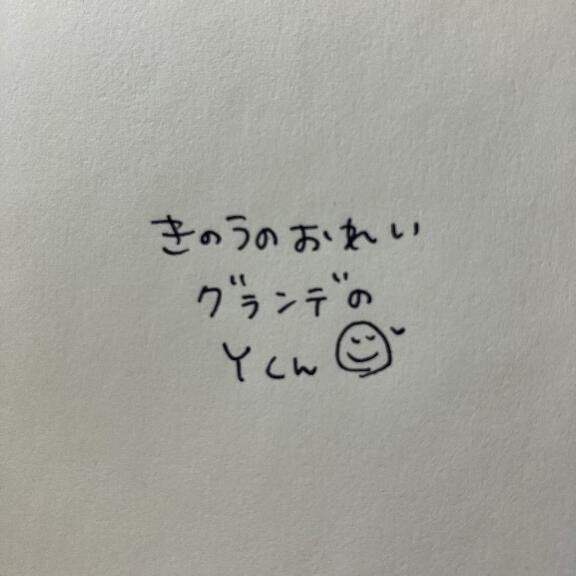 きのうのおれい
グランデの
Yくん